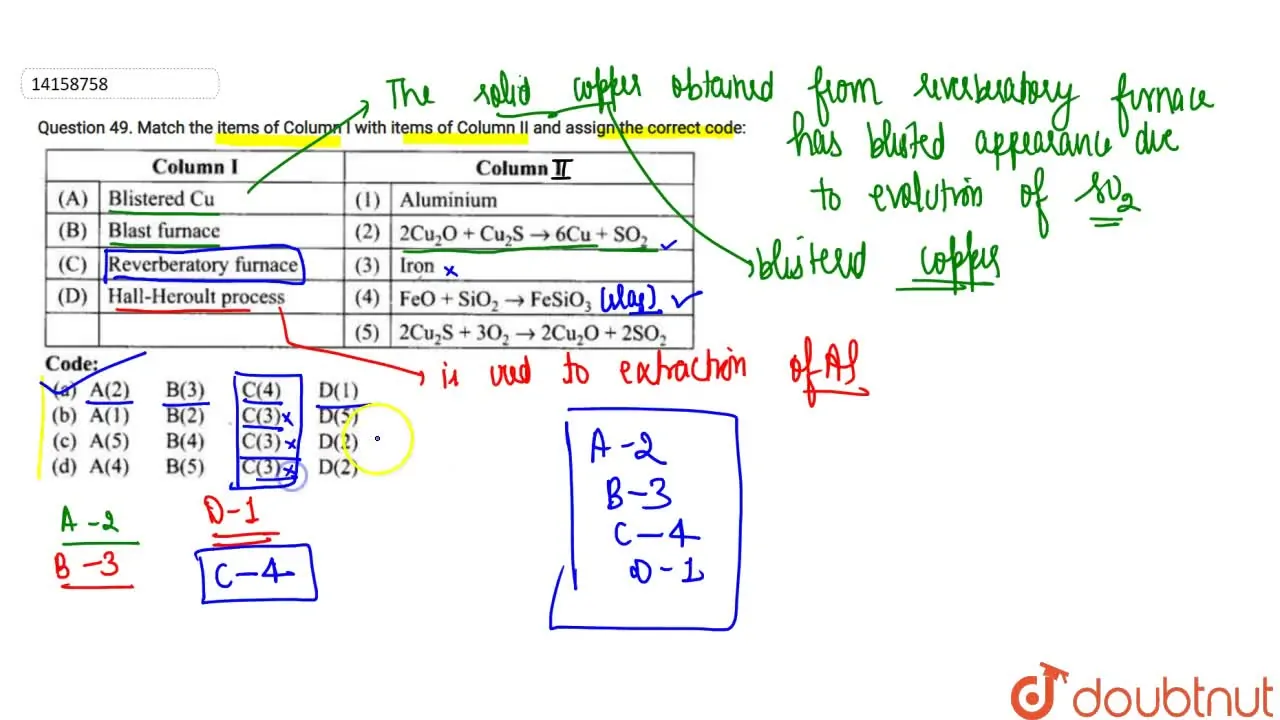 14158758
The solid copper obtained from reverberatory furnace
has blisted appearance due
to evolution of SO₂
blistered copper
Question 49. Match the items of Column I with items of Column II and assign the correct code:
Column I Column II
(A) Blistered Cu (1) Aluminium
(B) Blast furnace (2) 2Cu₂O + Cu₂S → 6Cu + SO₂ ✓
(C) Reverberatory furnace (3) Iron ×
(D) Hall-Heroult process (4) FeO + SiO₂ → FeSiO₃ (slag) ✓
(5) 2Cu₂S + 3O₂ → 2Cu₂O + 2SO₂
is used to extraction of Al
Code:
(a) A(2) B(3) C(4) D(1)
(b) A(1) B(2) C(3) × D(5)
(c) A(5) B(4) C(3) × D(2)
(d) A(4) B(5) C(3) × D(2)
A - 2
B - 3
D - 1
C - 4
A - 2
B - 3
C - 4
D - 1
doubtnut